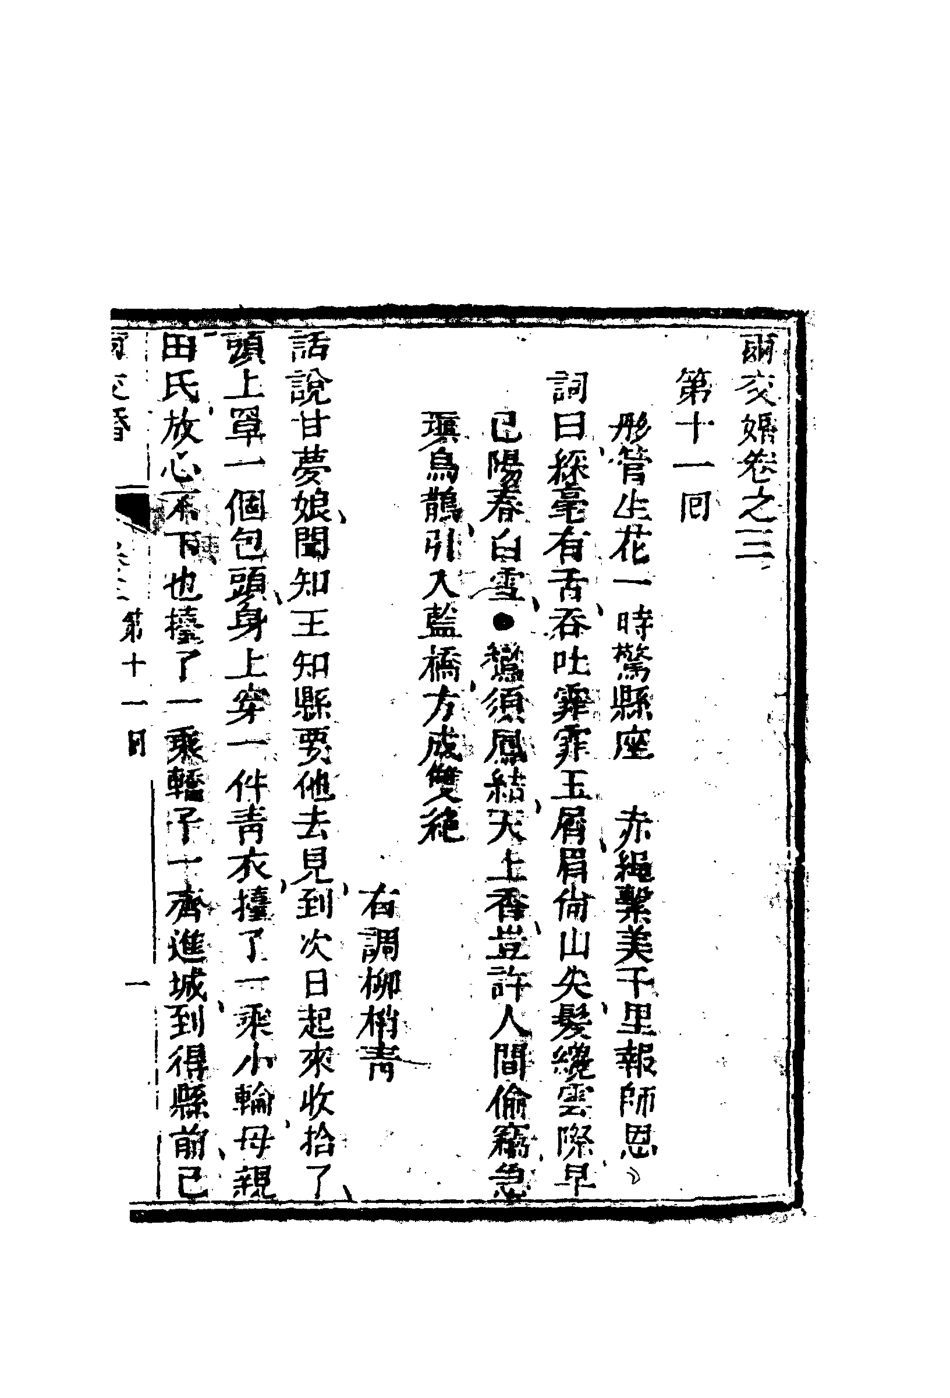 爾交婚卷之三
第十一回
彤管生花一時驚縣座　赤繩繫美千里報師恩
詞曰綵毫有舌吞吐霏霏玉屑眉尙山尖髮纔雲際早
已陽春白雪●鸞須鳳結天上香豈許人間偷竊急
塡烏鵲引入藍橋方成雙絕
右調柳梢靑
話說甘夢娘聞知王知縣要他去見到次日起來收拾了
頭上罩一個包頭身上穿一件靑衣擡了一乘小輪母親
田氏放心不下也擡了一乘轎子一齊進城到得縣前已
第十一回
一